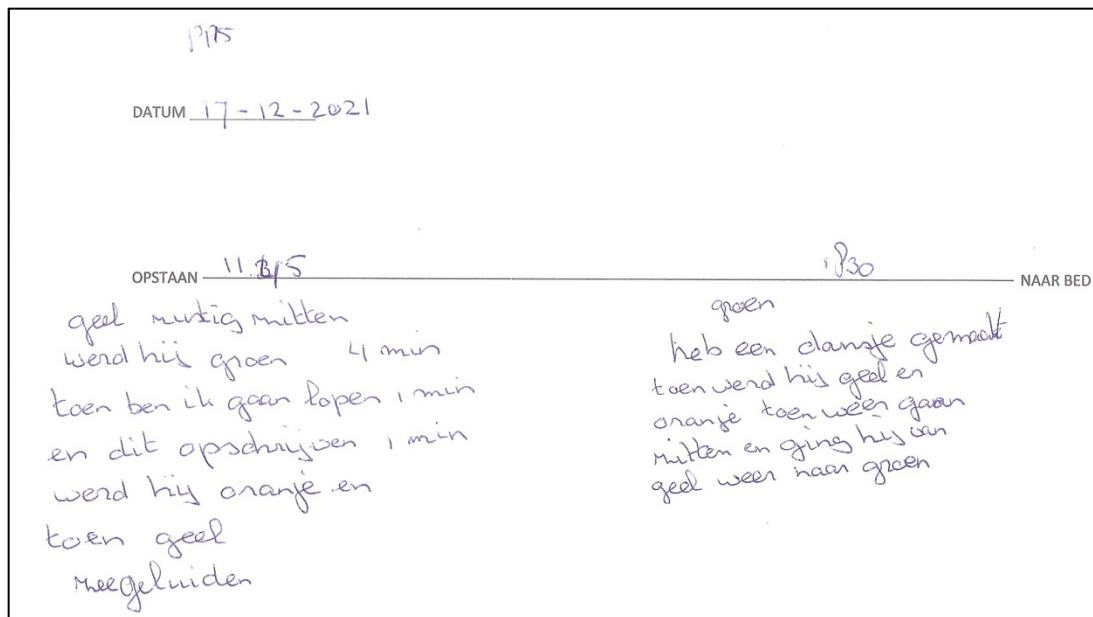 P175
DATUM 17-12-2021
OPSTAAN 11.15
1830 NAAR BED
geel rustig zitten
werd hij groen 4 min
toen ben ik gaan lopen 1 min
en dit opschrijven 1 min
werd hij oranje en
toen geel
zeegeluiden
groen
heb een dansje gemaakt
toen werd hij geel en
oranje toen weer gaan
zitten en ging hij van
geel weer naar groen